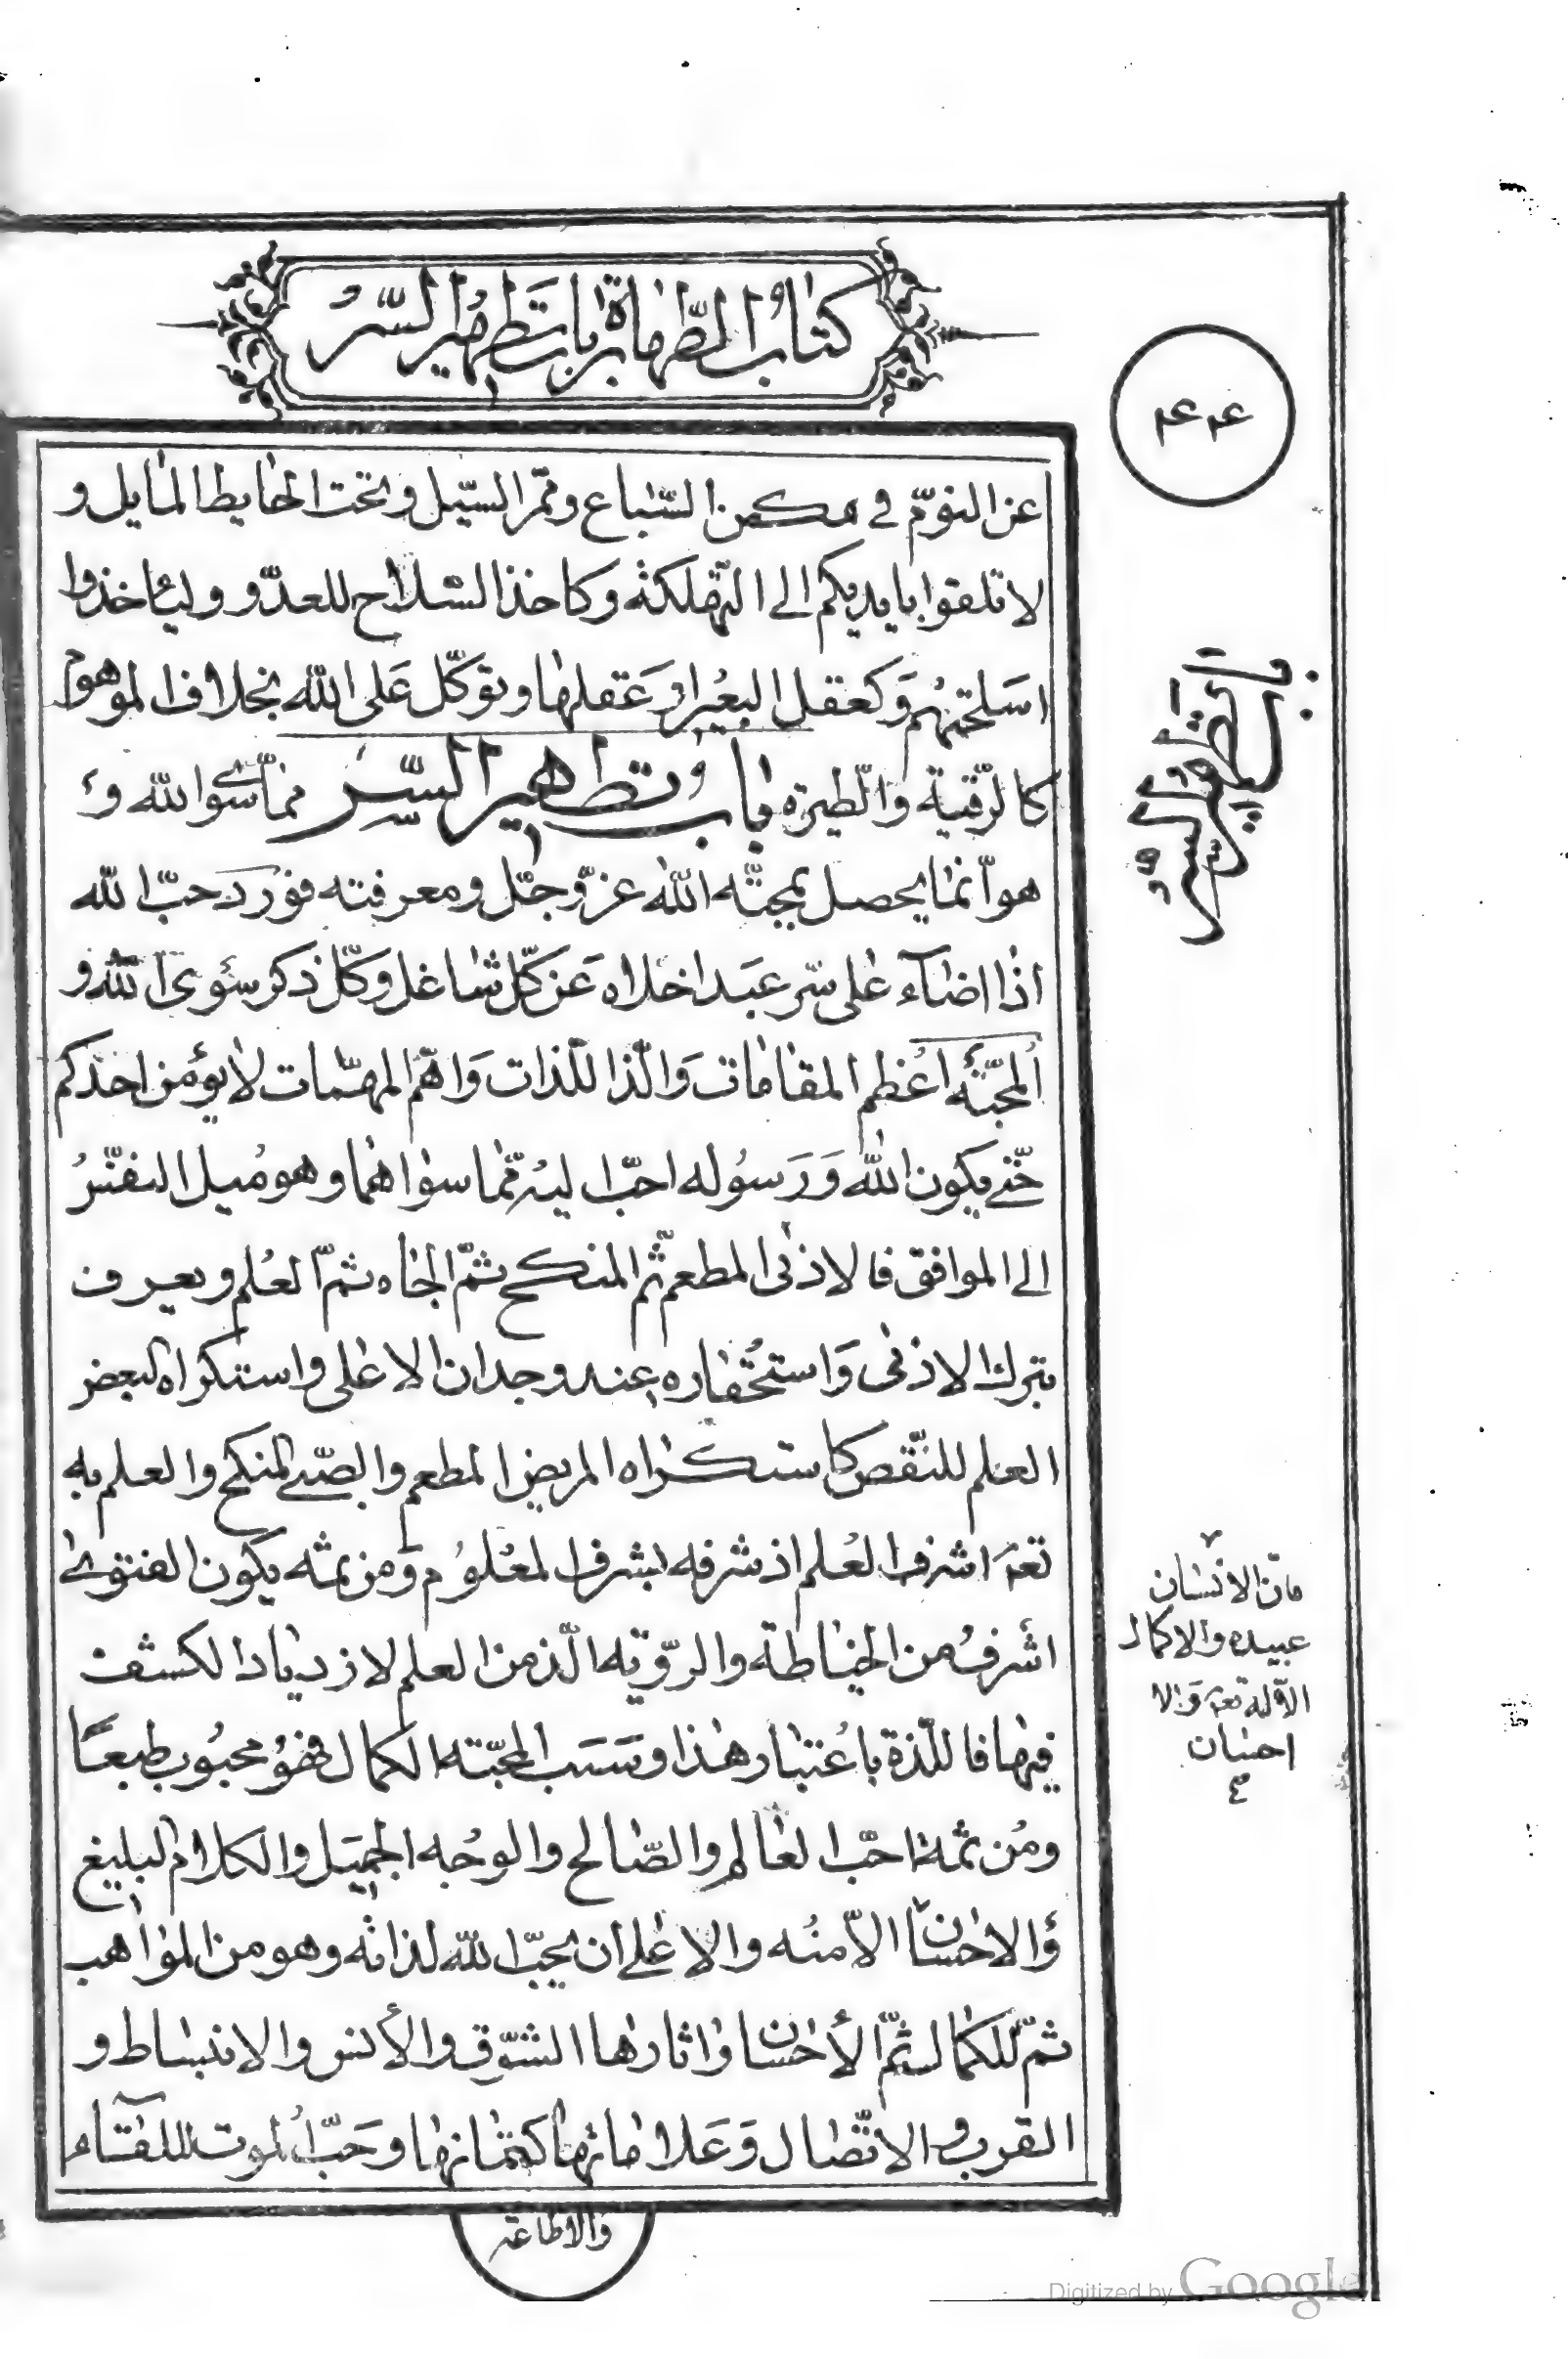 كتاب الطهارة باب تطهير السر
٤٤
عن النوم في مكمن السباع وممر السيل وتحت الحايط المايل و
لا تلقوا بايديكم الى التهلكة وكاخذ السلاح للعدو وليأخذوا
اسلحتهم وكعقل البعير اعقلها وتوكل على الله بخلاف الموهوم
كالرقية والطيرة باب تطهير السر مما سوا الله و
هو انما يحصل بمحبة الله عز وجل ومعرفته فورد حب الله
اذا اضاء على سر عبد اخلاه عن كل شاغل وكل ذكر سوى الله و
المحبة اعظم المقامات والذ اللذات واهم المهمات لا يؤمن احدكم
حتى يكون الله ورسوله احب اليه مما سواهما وهو ميل النفس
الى الموافق فالادنى المطعم ثم المنكح ثم الجاه ثم العلم ويعرف
بترك الادنى واستحقاره عند وجدان الاعلى واستكراه البعض
العلم للنقص كاستكراه المريض المطعم والصبي المنكح والعلم به
تعه اشرف العلم اذ شرفه بشرف المعلوم ومن ثمه يكون الفتوى
اشرف من الخياطة والروية الذ من العلم لازدياد الكشف
فيها فاللذة باعتبار هذا وسبب المحبة الكمال فهو محبوب طبعا
ومن ثمة احب العالم والصالح والوجه الجميل والكلام البليغ
والاحسان الا منه والاعلى ان يحب الله لذاته وهو من المواهب
ثم للكمال ثم الاحسان واثارها الشوق والأنس والانبساط و
القرب والاتصال وعلاماتها كتمانها وحب الموت للقاء
والاطاعة
باب تطهير السر
فان الانسان
عبيده والاكمال
الا له تعه ولا
احسان